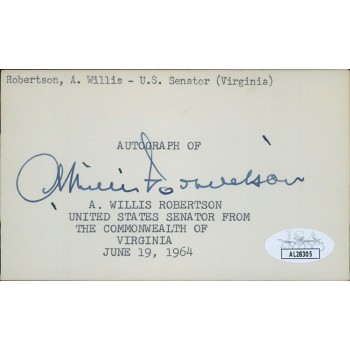 Robertson, A. Willis - U.S. Senator (Virginia)
AUTOGRAPH OF
A Willis Robertson
A. WILLIS ROBERTSON
UNITED STATES SENATOR FROM
THE COMMONWEALTH OF
VIRGINIA
JUNE 19, 1964
JSA
AL28305